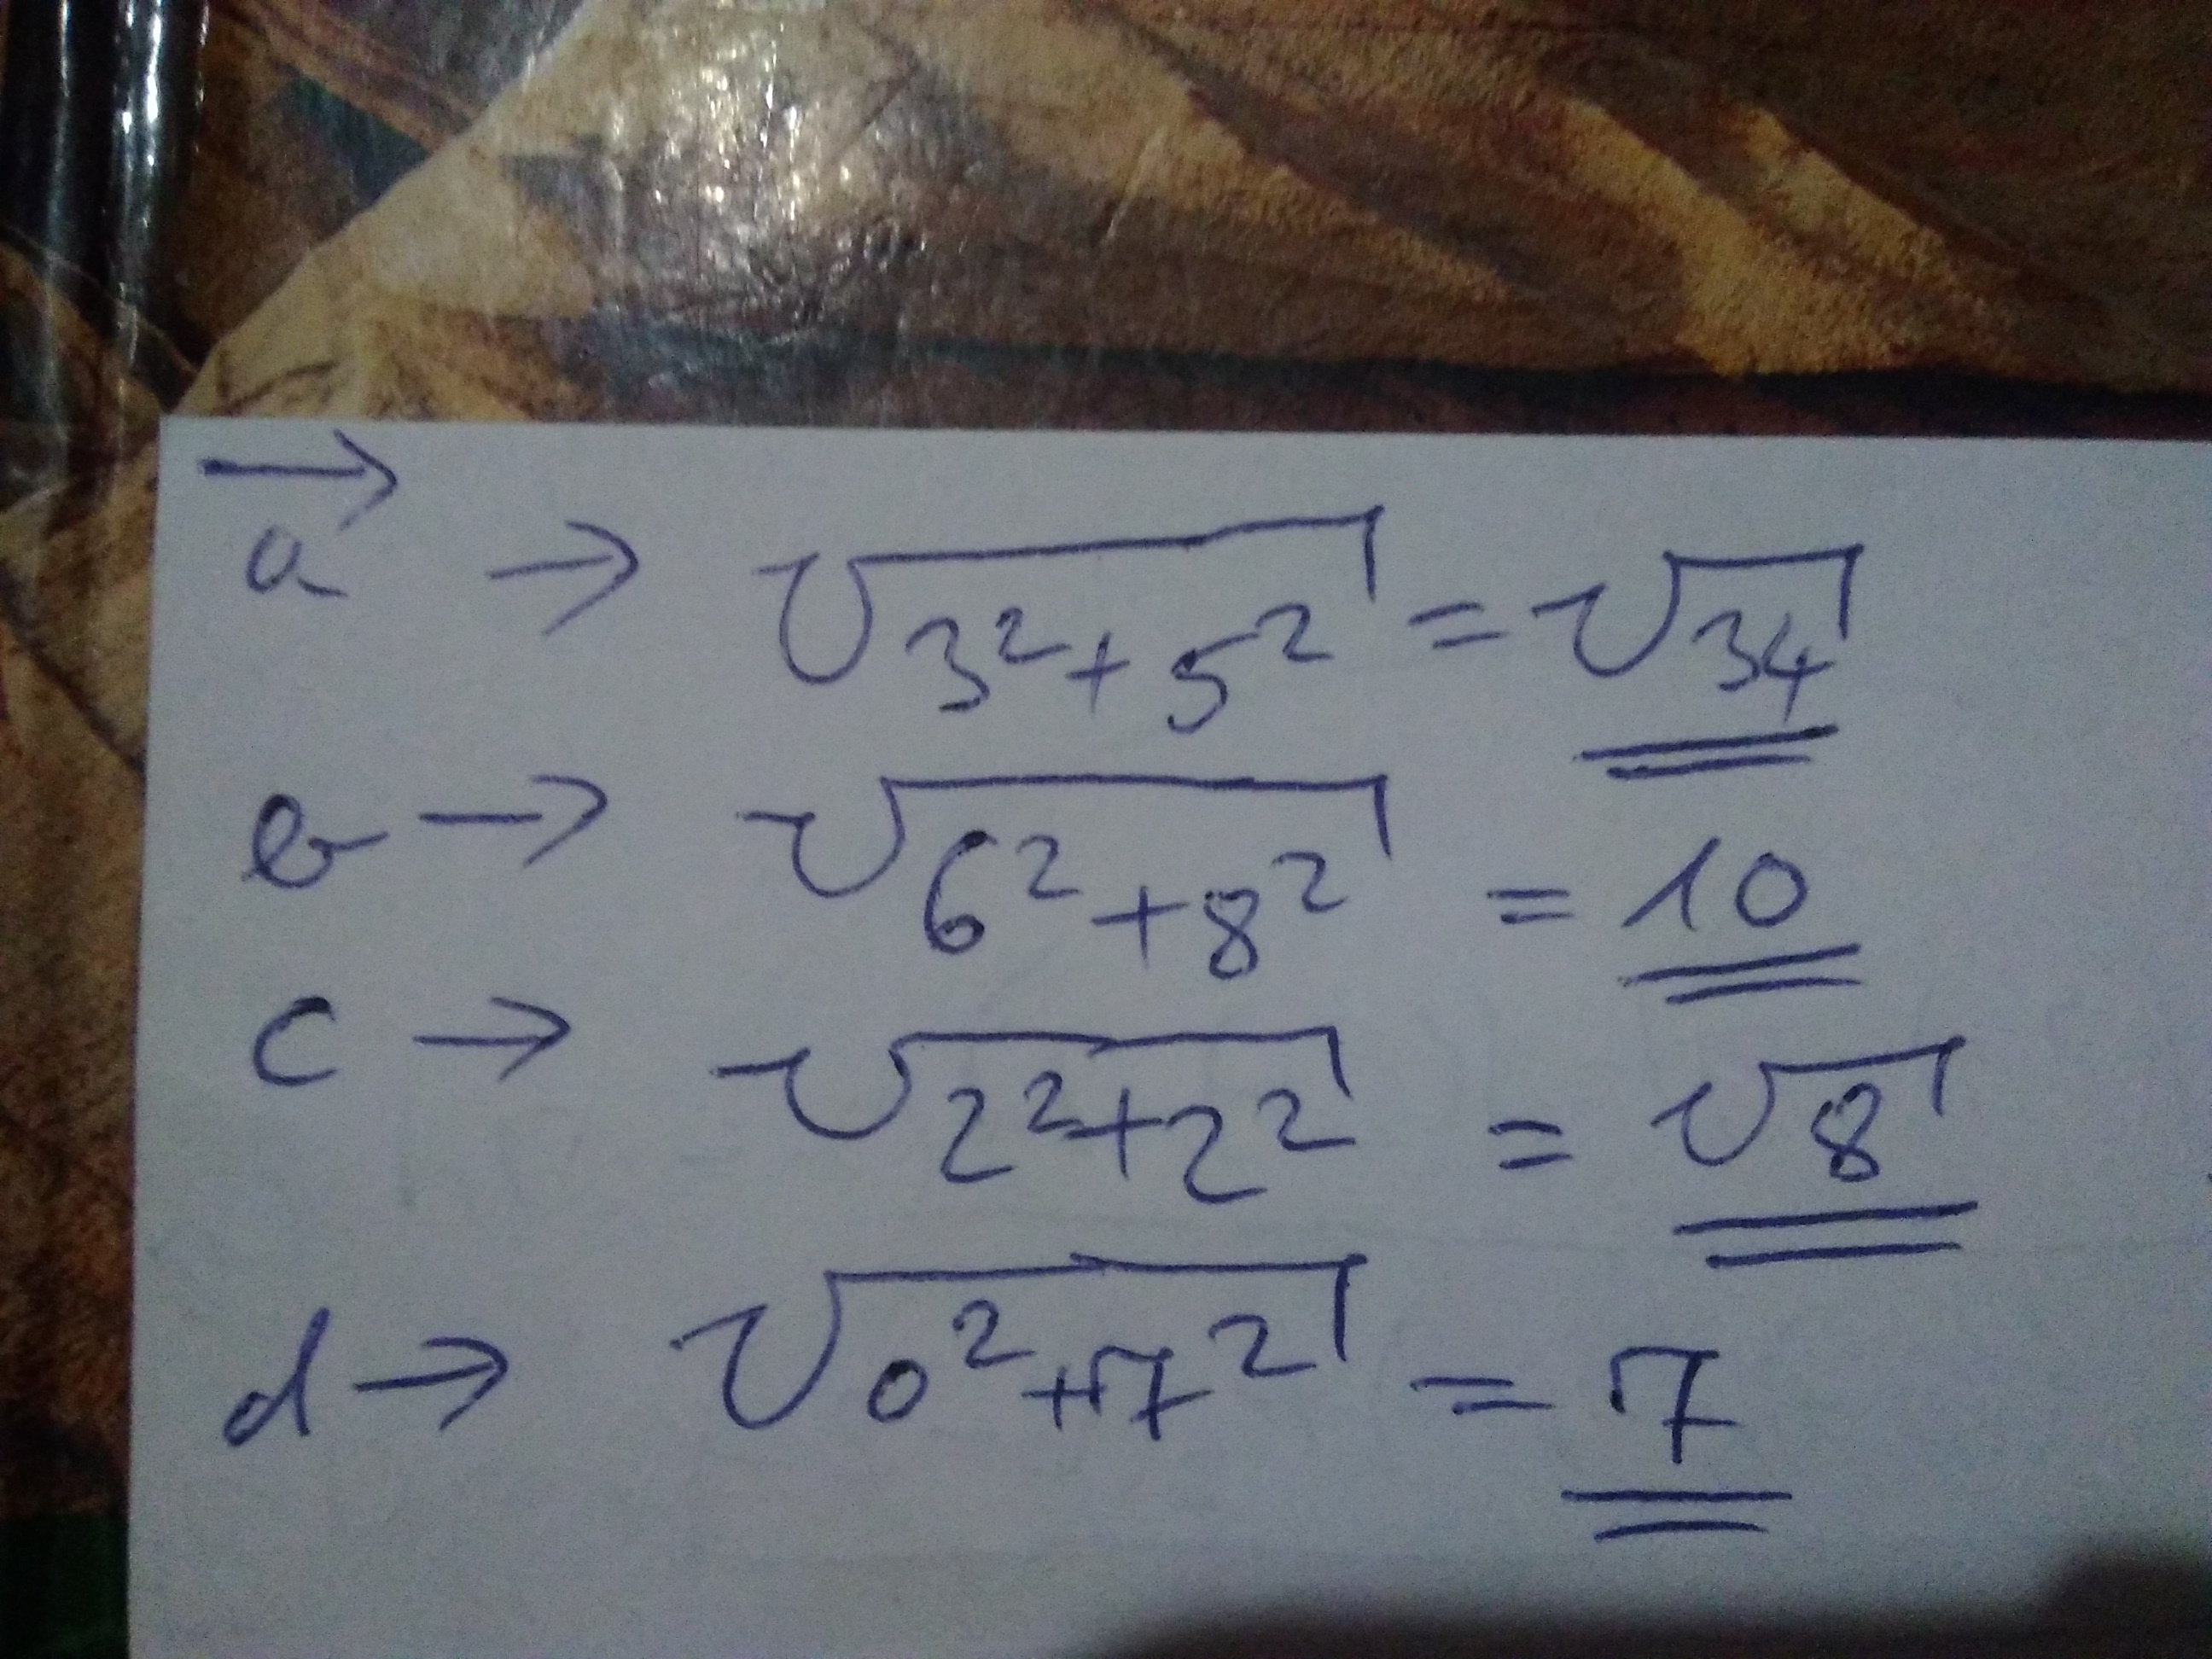 a⃗ → √(3² + 5²) = √34
b → √(6² + 8²) = 10
c → √(2² + 2²) = √8
d → √(0² + 7²) = 7